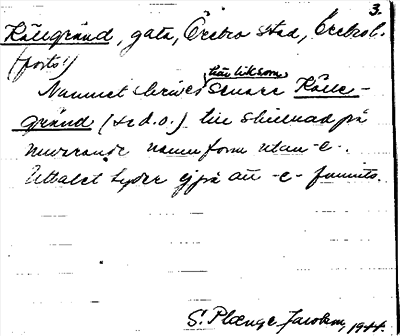 3.
Källegränd, gata, Örebro stad, Örebro l.
(forts.)
Namnet skrives senare Källe-
gränd (se d. o.) till skillnad på
nuvarande namnform utan -e-.
Uttalet tyder ej på att -e- funnits.
S. Plænge Jacobson, 1944.